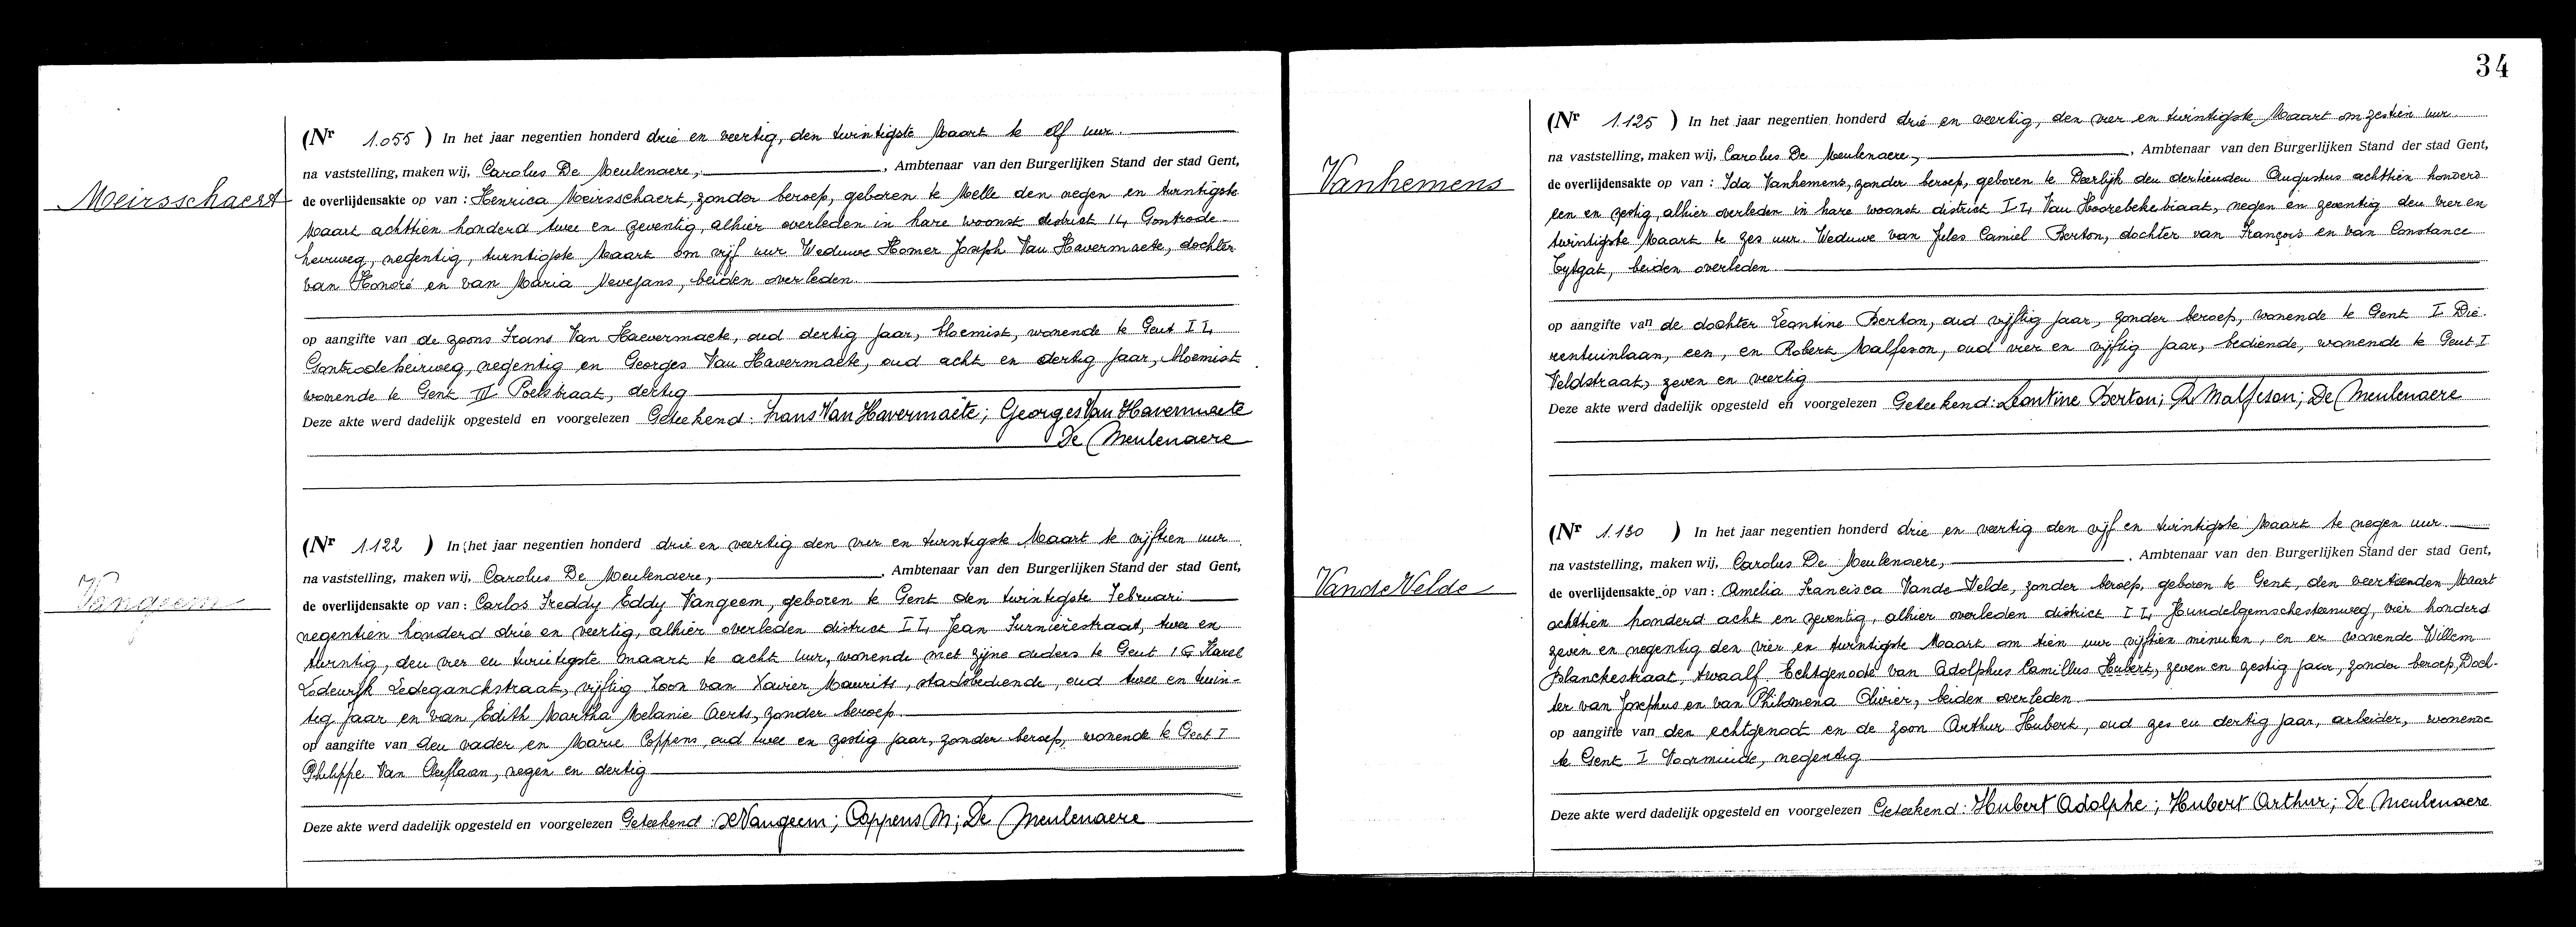 Meirsschaert
(Nr 1.055 ) In het jaar negentien honderd drie en veertig, den twintigste Maart te elf uur.
na vaststelling, maken wij, Carolus De Meulenaere, , Ambtenaar van den Burgerlijken Stand der stad Gent,
de overlijdensakte op van : Henrica Meirsschaert, zonder beroep, geboren te Melle den negen en twintigste
Maart achttien honderd twee en zeventig, alhier overleden in hare woonst district I4, Gontrode
heirweg, negentig, twintigste Maart om vijf uur Weduwe Homer Joseph Van Havermaete, dochter
van Honoré en van Maria Nevejans, beiden overleden.
op aangifte van de zoons Frans Van Haevermaete, oud dertig jaar, bloemist, wonende te Gent I4,
Gontrodeheirweg, negentig en Georges Van Havermaete, oud acht en dertig jaar, bloemist
wonende te Gent III Poelstraat, dertig
Deze akte werd dadelijk opgesteld en voorgelezen Geteekend: Frans Van Havermaëte; Georges Van Havermaete
De Meulenaere
Vangeem
(Nr 1.122 ) In het jaar negentien honderd drie en veertig den vier en twintigste Maart te vijftien uur
na vaststelling, maken wij, Carolus De Meulenaere, , Ambtenaar van den Burgerlijken Stand der stad Gent,
de overlijdensakte op van : Carlos Freddy Eddy Vangeem, geboren te Gent den twintigste Februari
negentien honderd drie en veertig, alhier overleden district I4, Jean Furnièrestraat, twee en
twintig, den vier en twintigste maart te acht uur, wonende met zijne ouders te Gent 1G Karel
Lodewijk Ledeganckstraat, vijftig Zoon van Xavier Maurits, stadsbediende, oud twee en twin-
tig jaar en van Edith Martha Melanie Aerts, zonder beroep
op aangifte van den vader en Marie Coppens, oud twee en zestig jaar, zonder beroep, wonende te Gent I
Philippe Van Cleeflaan, negen en dertig
Deze akte werd dadelijk opgesteld en voorgelezen Geteekend: Vangeem; Coppens M; De Meulenaere
34
Vanhemens
(Nr 1.125 ) In het jaar negentien honderd drie en veertig, den vier en twintigste Maart om zestien uur.
na vaststelling, maken wij, Carolus De Meulenaere, , Ambtenaar van den Burgerlijken Stand der stad Gent,
de overlijdensakte op van : Ida Vanhemens, zonder beroep, geboren te Deerlijk den dertienden Augustus achttien honderd
een en zestig, alhier overleden in hare woonst district I4, Van Hoorebekestraat, negen en zeventig den vier en
twintigste Maart te zes uur. Weduwe van Jules Camiel Berton, dochter van François en van Constance
Tytgat, beiden overleden.
op aangifte van de dochter Leontine Berton, oud vijftig jaar, zonder beroep, wonende te Gent I Die-
rentuinlaan, een, en Robert Malfeson, oud vier en vijftig jaar, bediende, wonende te Gent I
Veldstraat, zeven en veertig
Deze akte werd dadelijk opgesteld en voorgelezen Geteekend: Leontine Berton; R Malfeson; De Meulenaere
Vande Velde
(Nr 1.130 ) In het jaar negentien honderd drie en veertig den vijf en twintigste Maart te negen uur
na vaststelling, maken wij, Carolus De Meulenaere, , Ambtenaar van den Burgerlijken Stand der stad Gent,
de overlijdensakte op van : Amelia Francisca Vande Velde, zonder beroep, geboren te Gent, den veertienden Maart
achttien honderd acht en zeventig, alhier overleden district I4, Hundelgemschesteenweg, vier honderd
zeven en negentig den vier en twintigste Maart om tien uur vijftien minuten, en er wonende Willem
Blanckestraat, twaalf. Echtgenoote van Adolphus Camillus Hubert, zeven en zestig jaar, zonder beroep, Doch-
ter van Josephus en van Philomena Olivier, beiden overleden
op aangifte van den echtgenoot en de zoon Arthur Hubert, oud zes en dertig jaar, arbeider, wonende
te Gent I Voormuide, negentig
Deze akte werd dadelijk opgesteld en voorgelezen Geteekend: Hubert Adolphe; Hubert Arthur; De Meulenaere